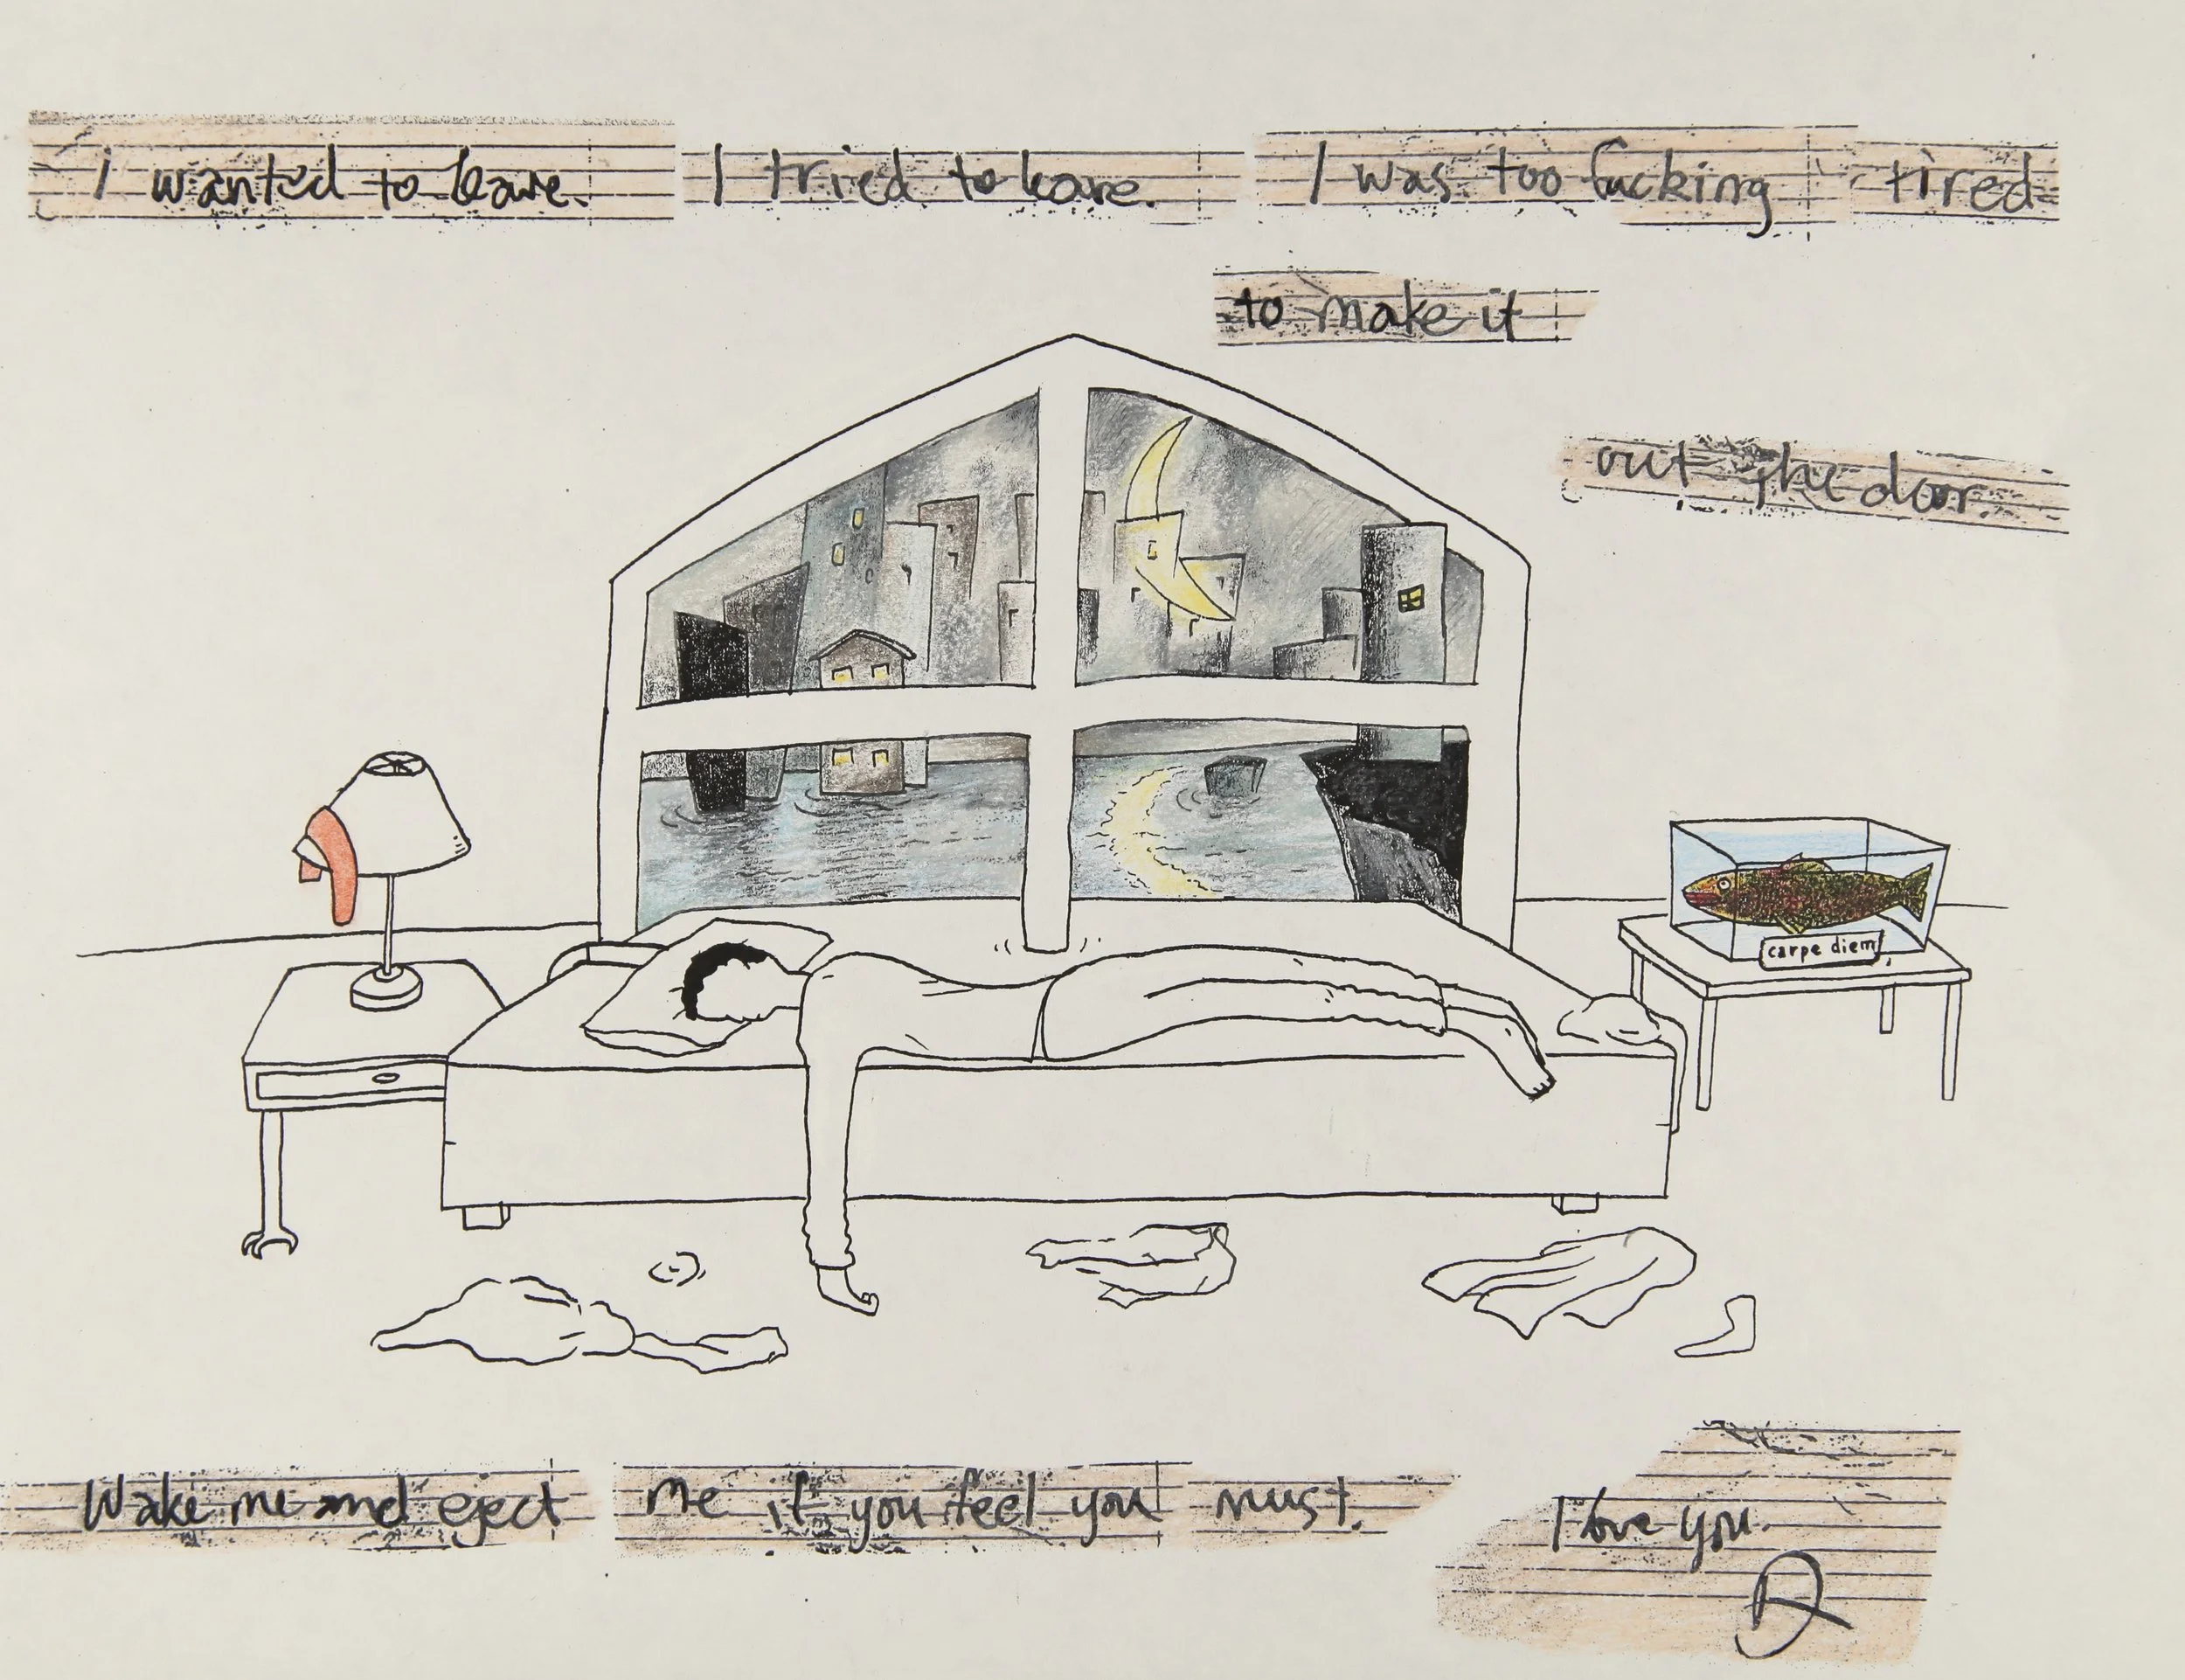 I wanted to leave. I tried to leave. I was too fucking tired
to make it
out the door.
carpe diem
Wake me and eject me if you feel you must.
I love you.
D